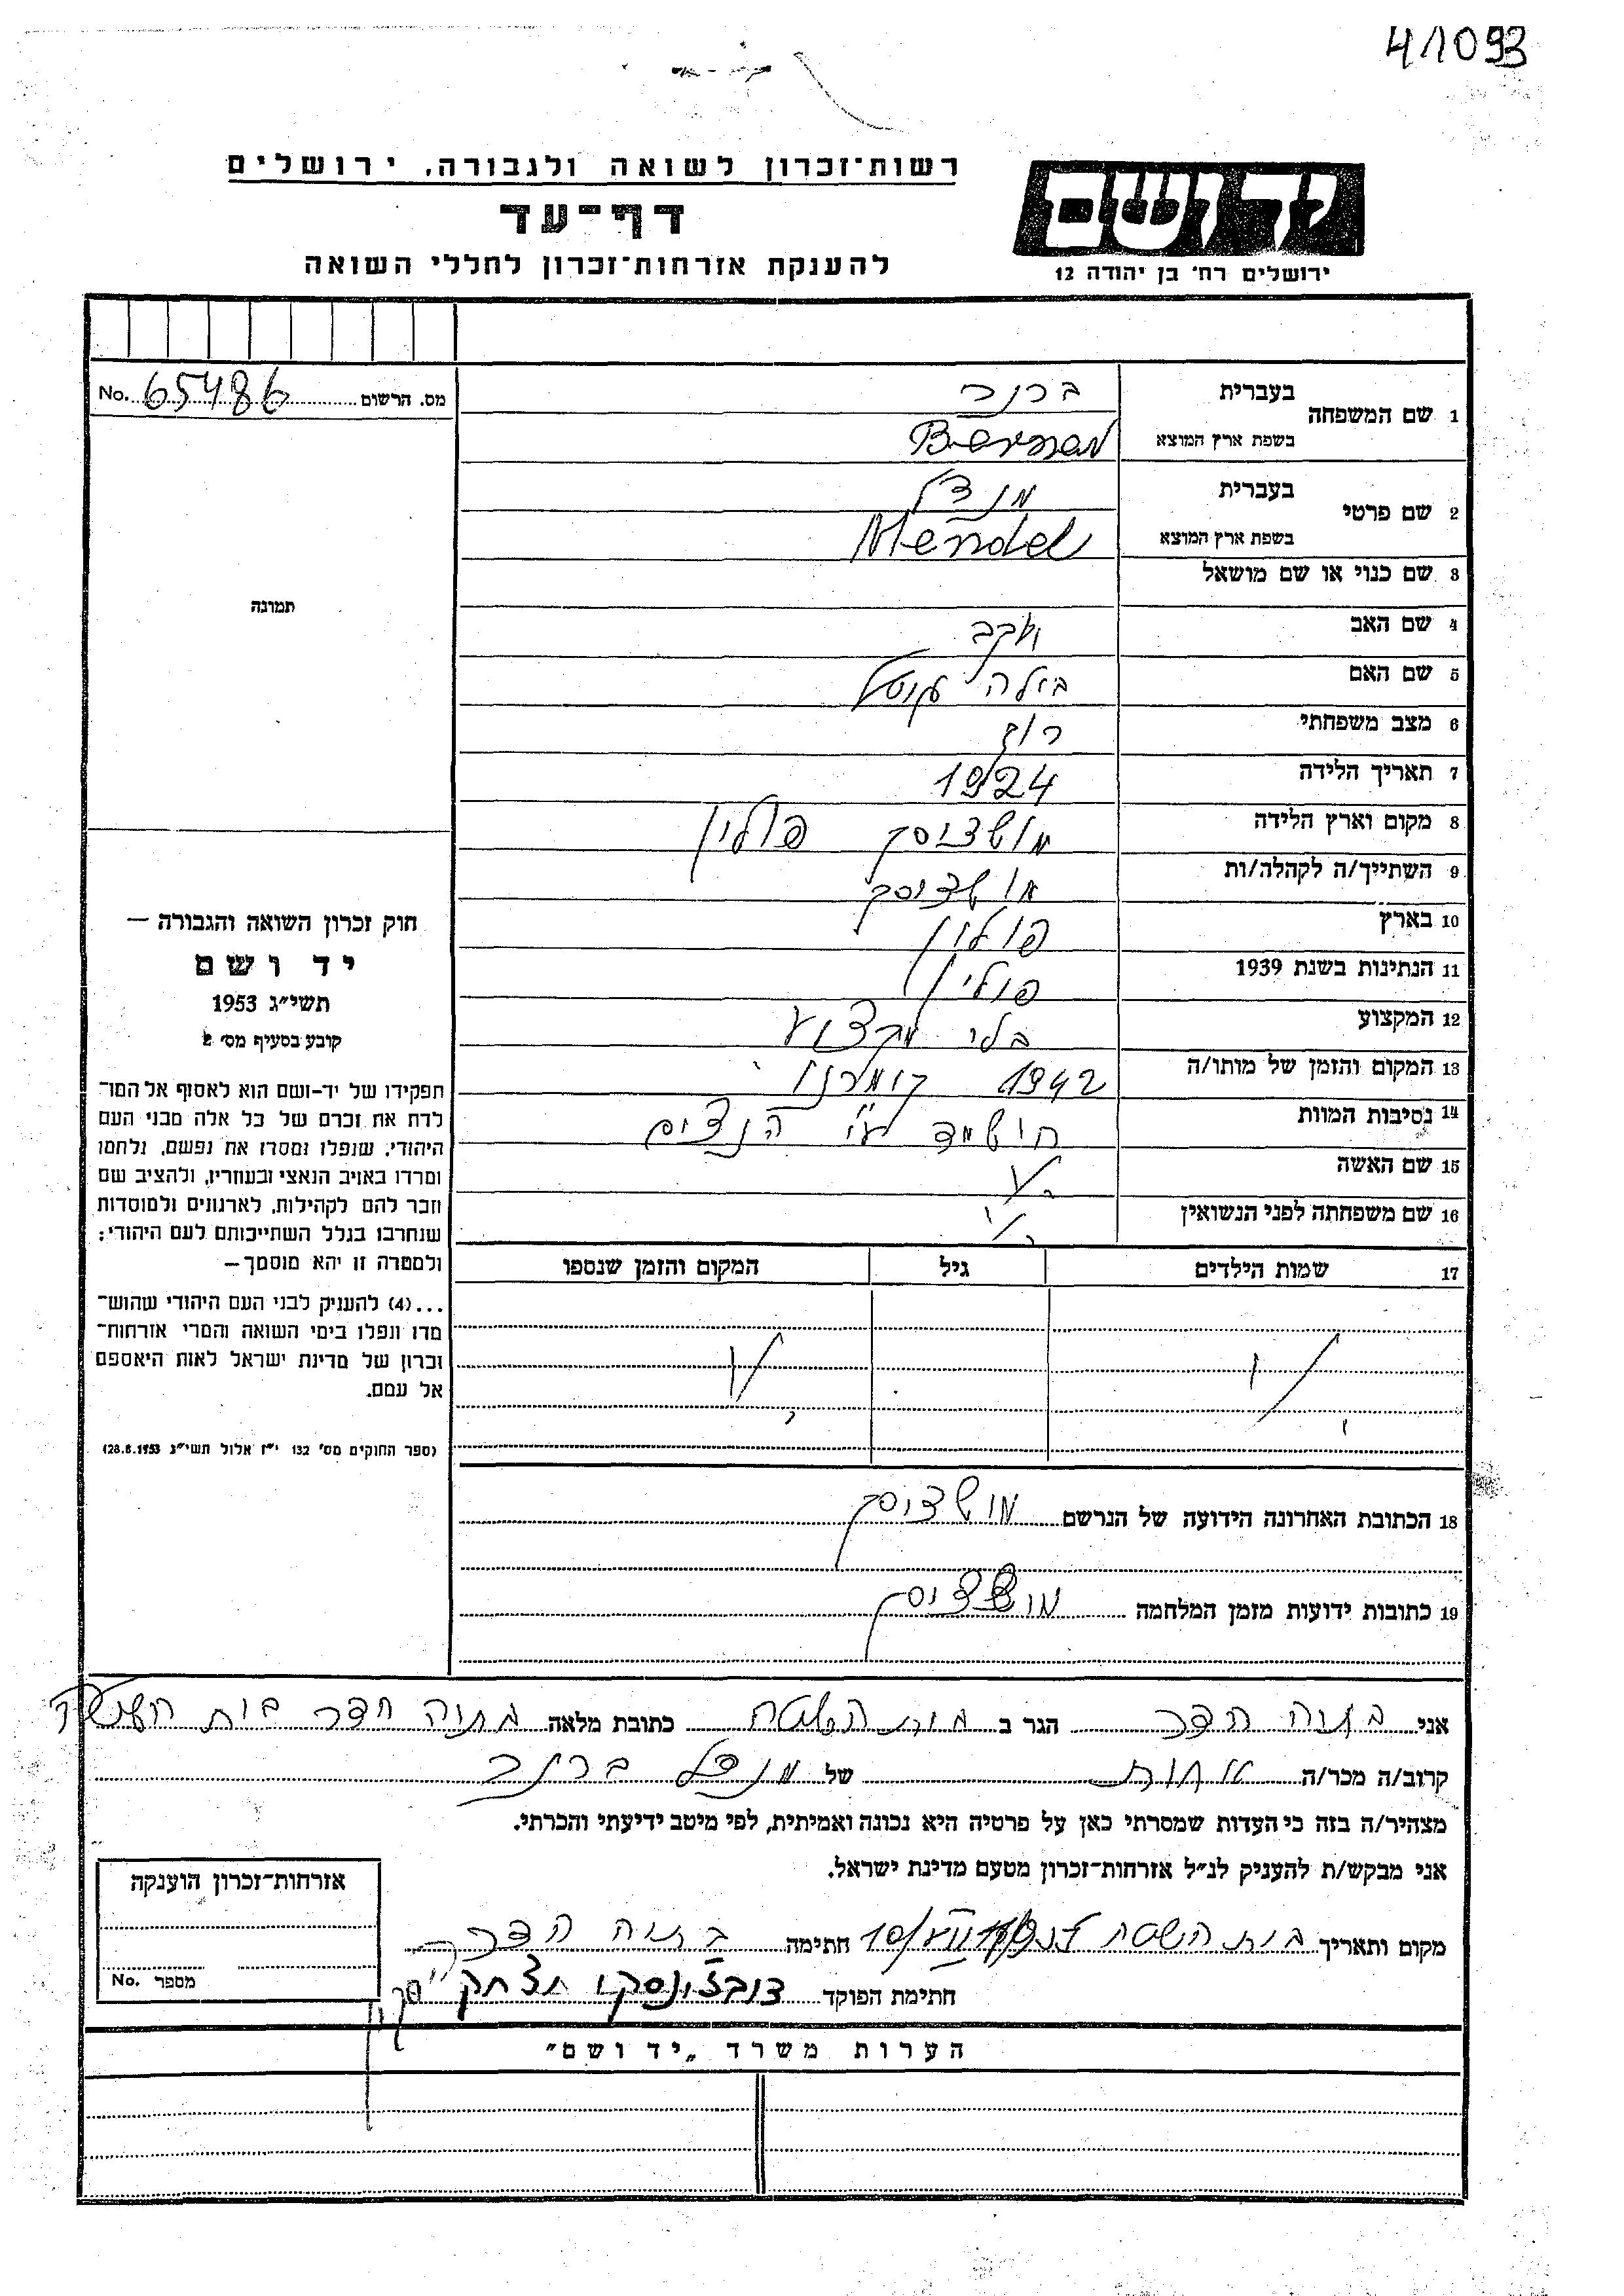 4/1093
רשות־זכרון לשואה ולגבורה, ירושלים
דף־עד
להענקת אזרחות־זכרון לחללי השואה
ידושם
ירושלים רח' בן יהודה 12
מס. הרשום No. 65486
1 שם המשפחה בעברית ברנר
בשפת ארץ המוצא
2 שם פרטי בעברית מנדל
בשפת ארץ המוצא Mendel
3 שם כנוי או שם מושאל
4 שם האב יעקב
5 שם האם ביילה
6 מצב משפחתי רוק
7 תאריך הלידה 1924
8 מקום וארץ הלידה פולין
9 השתייך/ה לקהלה/ות
10 בארץ פולין
11 הנתינות בשנת 1939 פולין
12 המקצוע בלי מקצוע
13 המקום והזמן של מותו/ה 1942
14 נסיבות המוות הושמד ע"י הנצים
15 שם האשה
16 שם משפחתה לפני הנשואין
17 שמות הילדים גיל המקום והזמן שנספו
תמונה
חוק זכרון השואה והגבורה —
יד ושם
תשי״ג 1953
קובע בסעיף מס׳ 2
תפקידו של יד-ושם הוא לאסוף אל המו־
לדת את זכרם של כל אלה מבני העם
היהודי, שנפלו ומסרו את נפשם, נלחמו
ומרדו באויב הנאצי ובעוזריו, ולהציב שם
וזכר להם לקהילות, לארגונים ולמוסדות
שנחרבו בגלל השתייכותם לעם היהודי;
ולמטרה זו יהא מוסמך —
...(4) להעניק לבני העם היהודי שהוש־
מדו ונפלו בימי השואה והמרי אזרחות־
זכרון של מדינת ישראל לאות היאספם
אל עמם.
(ספר החוקים מס׳ 132 י״ז אלול תשי״ג 28.8.1953)
18 הכתובת האחרונה הידועה של הנרשם
19 כתובות ידועות מזמן המלחמה
אני בתיה הדר הגר ב בית השטה כתובת מלאה בתיה הדר בית השטה
קרוב/ה מכר/ה אחות של מנדל ברנר
מצהיר/ה בזה כי העדות שמסרתי כאן על פרטיה היא נכונה ואמיתית, לפי מיטב ידיעתי והכרתי.
אני מבקש/ת להעניק לנ״ל אזרחות־זכרון מטעם מדינת ישראל.
מקום ותאריך בית השטה חתימה בתיה הדר
חתימת הפוקד
אזרחות־זכרון הוענקה
מספר No.
הערות משרד „יד ושם״